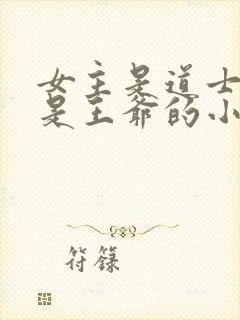 女主是道士
是王爺的小
符籙